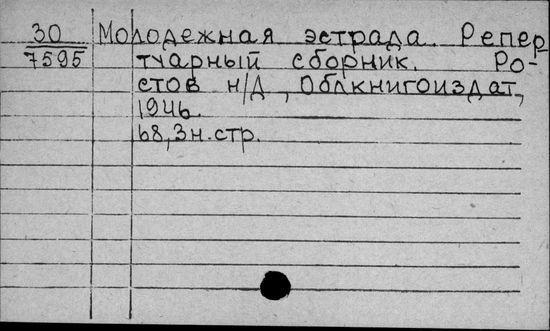 30 Молодежная эстрада. Репер-
7595 туарный сборник. Ро-
стов н/Д, Облкнигоиздат,
1946.
68,3н.стр.